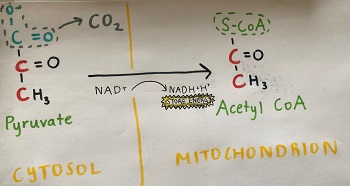 O⁻
C = O
CO₂
C = O
CH₃
Pyruvate
NAD⁺
NADH + H⁺
STORE ENERGY
S-CoA
C = O
CH₃
Acetyl CoA
CYTOSOL
MITOCHONDRION